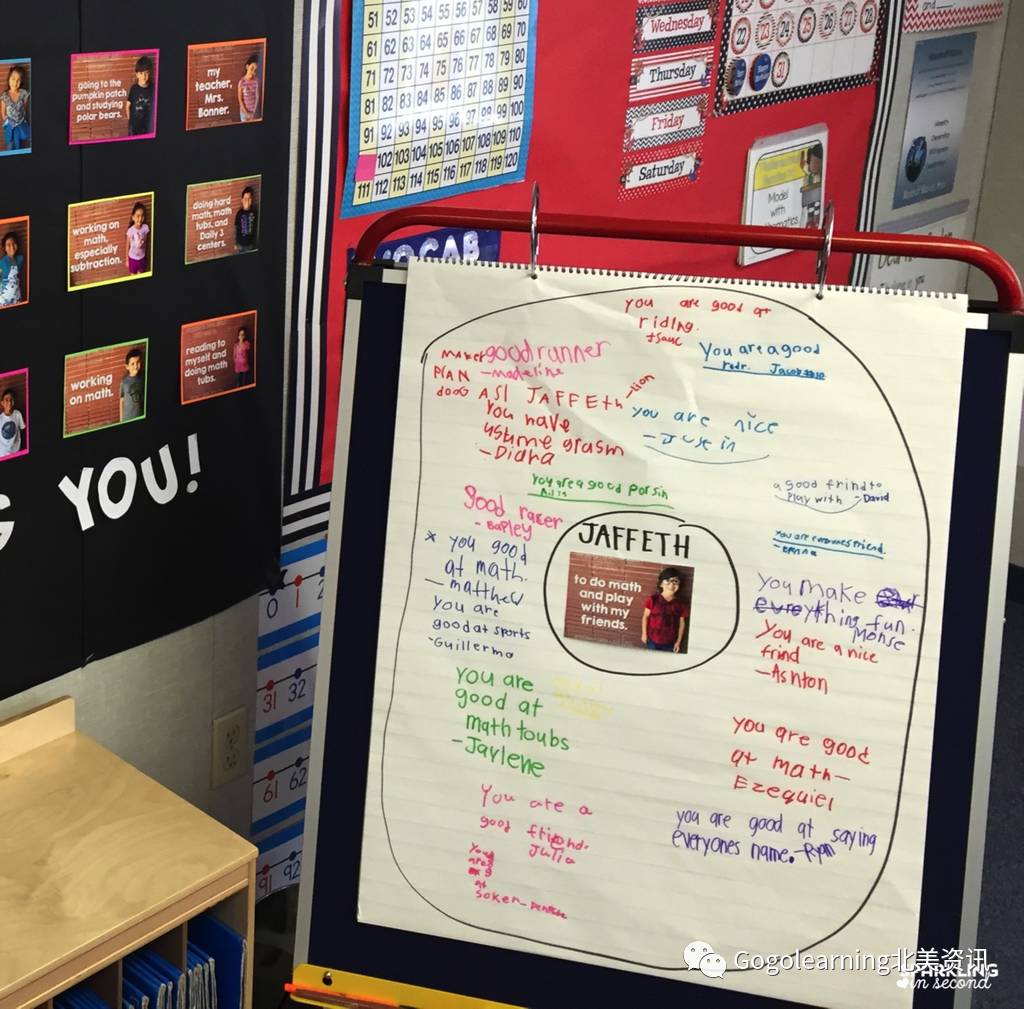 going to the
pumpkin patch
and studying
polar bears.
my
teacher,
Mrs.
Bonner.
working on
math,
especially
subtraction.
doing hard
math, math
tubs, and
Daily 3
centers.
working
on math.
reading to
myself and
doing math
tubs.
YOU!
51 52 53 54 55 56 57 58 59 60
61 62 63 64 65 66 67 68 69 70
71 72 73 74 75 76 77 78 79 80
81 82 83 84 85 86 87 88 89 90
91 92 93 94 95 96 97 98 99 100
102 103 104 105 106 107 108 109 110
111 112 113 114 115 116 117 118 119 120
Wednesday
Thursday
Friday
Saturday
22 23 24 25 26 27 28
31
Model
with
VOCAB
you are good at
riding.
You are a good
redr. Jacob
good runner
-madeline
PLAN
ASI JAFFETH
you are nice
You have
-Didha
you are a good porsin
a good frind to
play with - David
good racer
JAFFETH
to do math
and play
with my
friends.
* you good
at math.
-matthew
you are
good at sports
-Guillermo
you make
everything fun.
Monse
You are a nice
frind
-Ashton
you are
good at
math toubs
-Jaylene
you are good
at math-
Ezequiel
You are a
good friend.
Julia
you are good at saying
everyones name. -Ryan
at
soker-
0 1 2
31 32
61 62
91 92
Gogolearning北美资讯
SPARKLING
in second